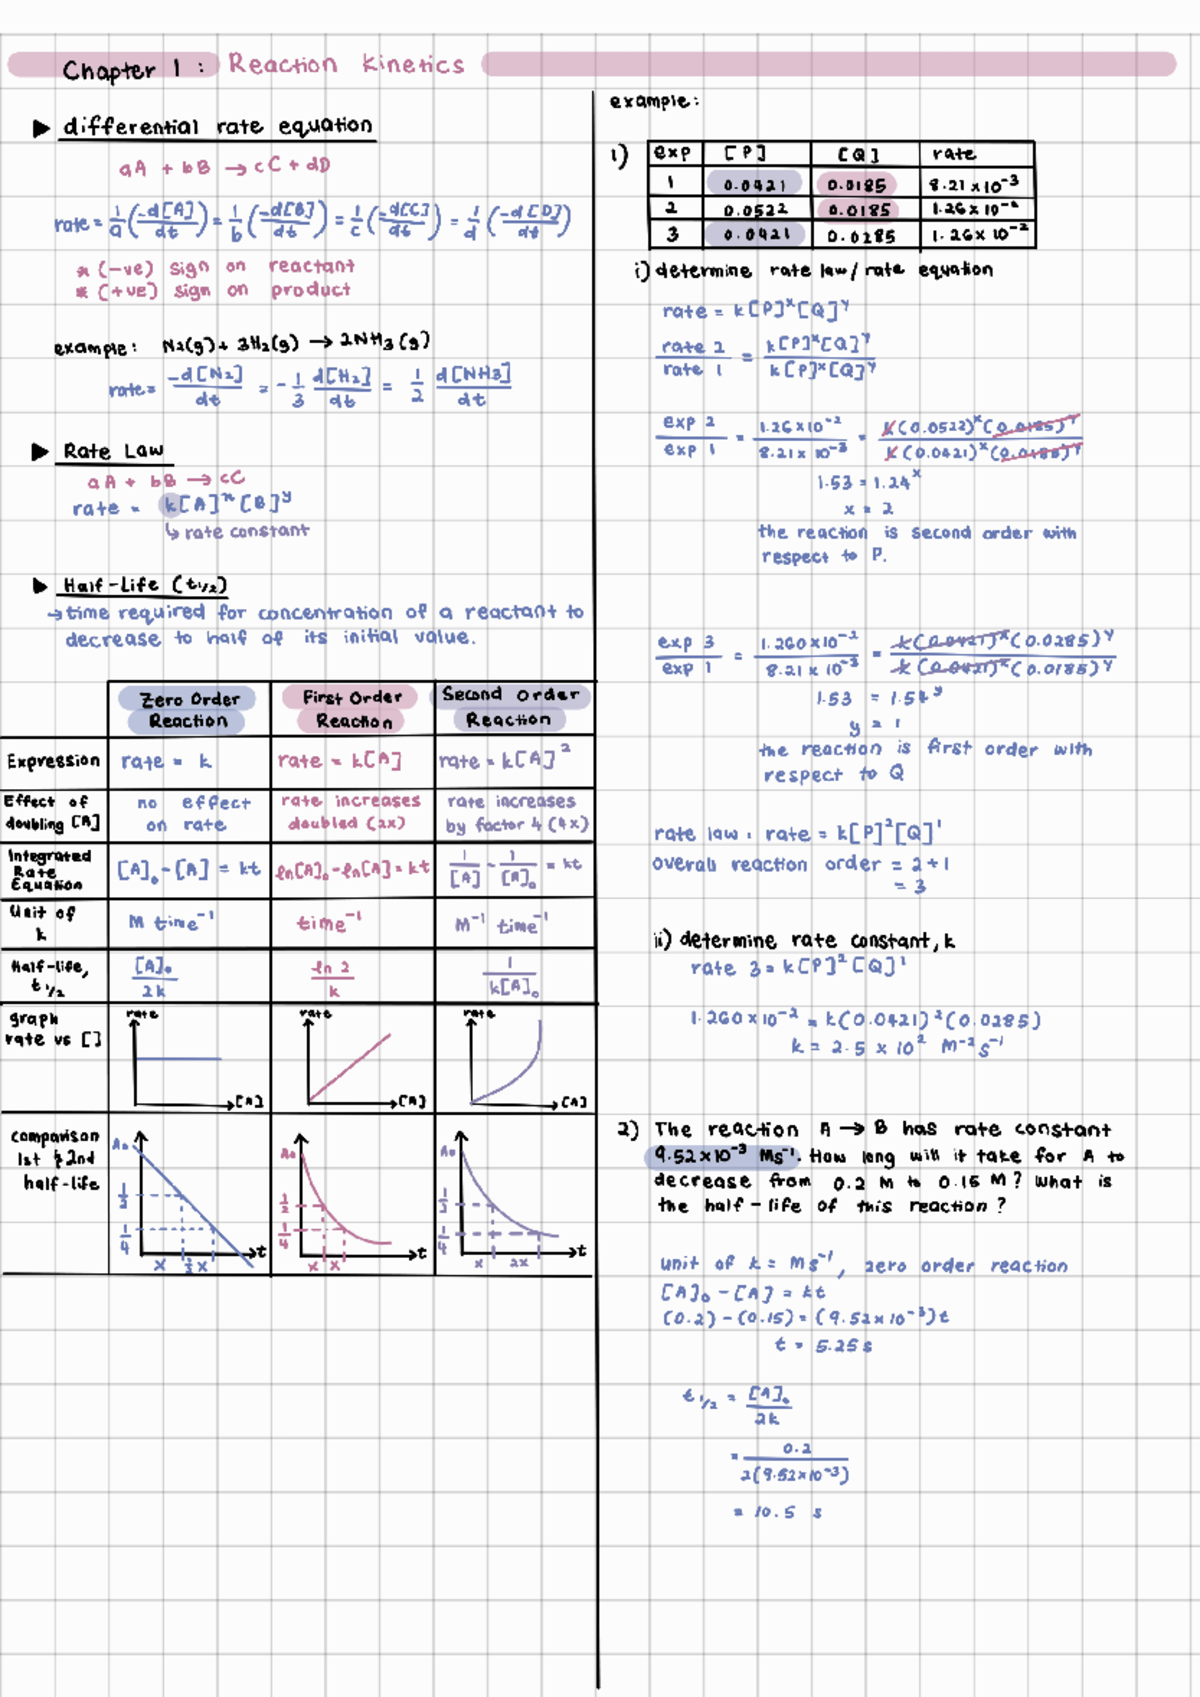 Chapter 1 : Reaction Kinetics
▶ differential rate equation
aA + bB → cC + dD
rate = 1/a (-d[A]/dt) = 1/b (-d[B]/dt) = 1/c (-d[C]/dt) = 1/d (-d[D]/dt)
* (-ve) sign on reactant
* (+ve) sign on product
example: N2(g) + 3H2(g) → 2NH3(g)
rate = -d[N2]/dt = -1/3 d[H2]/dt = 1/2 d[NH3]/dt
▶ Rate Law
aA + bB → cC
rate = k[A]ˣ[B]ʸ
↳ rate constant
▶ Half-Life (t1/2)
→ time required for concentration of a reactant to
decrease to half of its initial value.
Zero Order Reaction | First Order Reaction | Second Order Reaction
Expression | rate = k | rate = k[A] | rate = k[A]²
Effect of doubling [A] | no effect on rate | rate increases doubled (2x) | rate increases by factor 4 (4x)
Integrated Rate Equation | [A]₀ - [A] = kt | ln[A]₀ - ln[A] = kt | 1/[A] - 1/[A]₀ = kt
Unit of k | M time⁻¹ | time⁻¹ | M⁻¹ time⁻¹
Half-life, t1/2 | [A]₀/2k | ln 2/k | 1/k[A]₀
graph rate vs [] | rate [A] | rate [A] | rate [A]
comparison 1st & 2nd half-life | A₀ 1/2 1/4 x 1/2x t | A₀ 1/2 1/4 x x t | A₀ 1/2 1/4 x 2x t
example:
1) exp | [P] | [Q] | rate
1 | 0.0421 | 0.0185 | 8.21 x 10⁻³
2 | 0.0522 | 0.0185 | 1.26 x 10⁻²
3 | 0.0421 | 0.0285 | 1.26 x 10⁻²
i) determine rate law/ rate equation
rate = k[P]ˣ[Q]ʸ
rate 2/rate 1 = k[P]ˣ[Q]ʸ/k[P]ˣ[Q]ʸ
exp 2/exp 1 = 1.26 x 10⁻²/8.21 x 10⁻³ = k(0.0522)ˣ(0.0185)ʸ/k(0.0421)ˣ(0.0185)ʸ
1.53 = 1.24ˣ
x = 2
the reaction is second order with
respect to P.
exp 3/exp 1 = 1.260 x 10⁻²/8.21 x 10⁻³ = k(0.0421)ˣ(0.0285)ʸ/k(0.0421)ˣ(0.0185)ʸ
1.53 = 1.54ʸ
y = 1
the reaction is first order with
respect to Q
rate law : rate = k[P]²[Q]¹
overall reaction order = 2+1
= 3
ii) determine rate constant, k
rate 3 = k[P]²[Q]¹
1.260 x 10⁻² = k(0.0421)²(0.0285)
k = 2.5 x 10² M⁻²s⁻¹
2) The reaction A → B has rate constant
9.52 x 10⁻³ Ms⁻¹. How long will it take for A to
decrease from 0.2 M to 0.15 M? What is
the half-life of this reaction?
unit of k = Ms⁻¹, zero order reaction
[A]₀ - [A] = kt
(0.2) - (0.15) = (9.52 x 10⁻³)t
t = 5.25 s
t1/2 = [A]₀/2k
= 0.2/2(9.52 x 10⁻³)
= 10.5 s